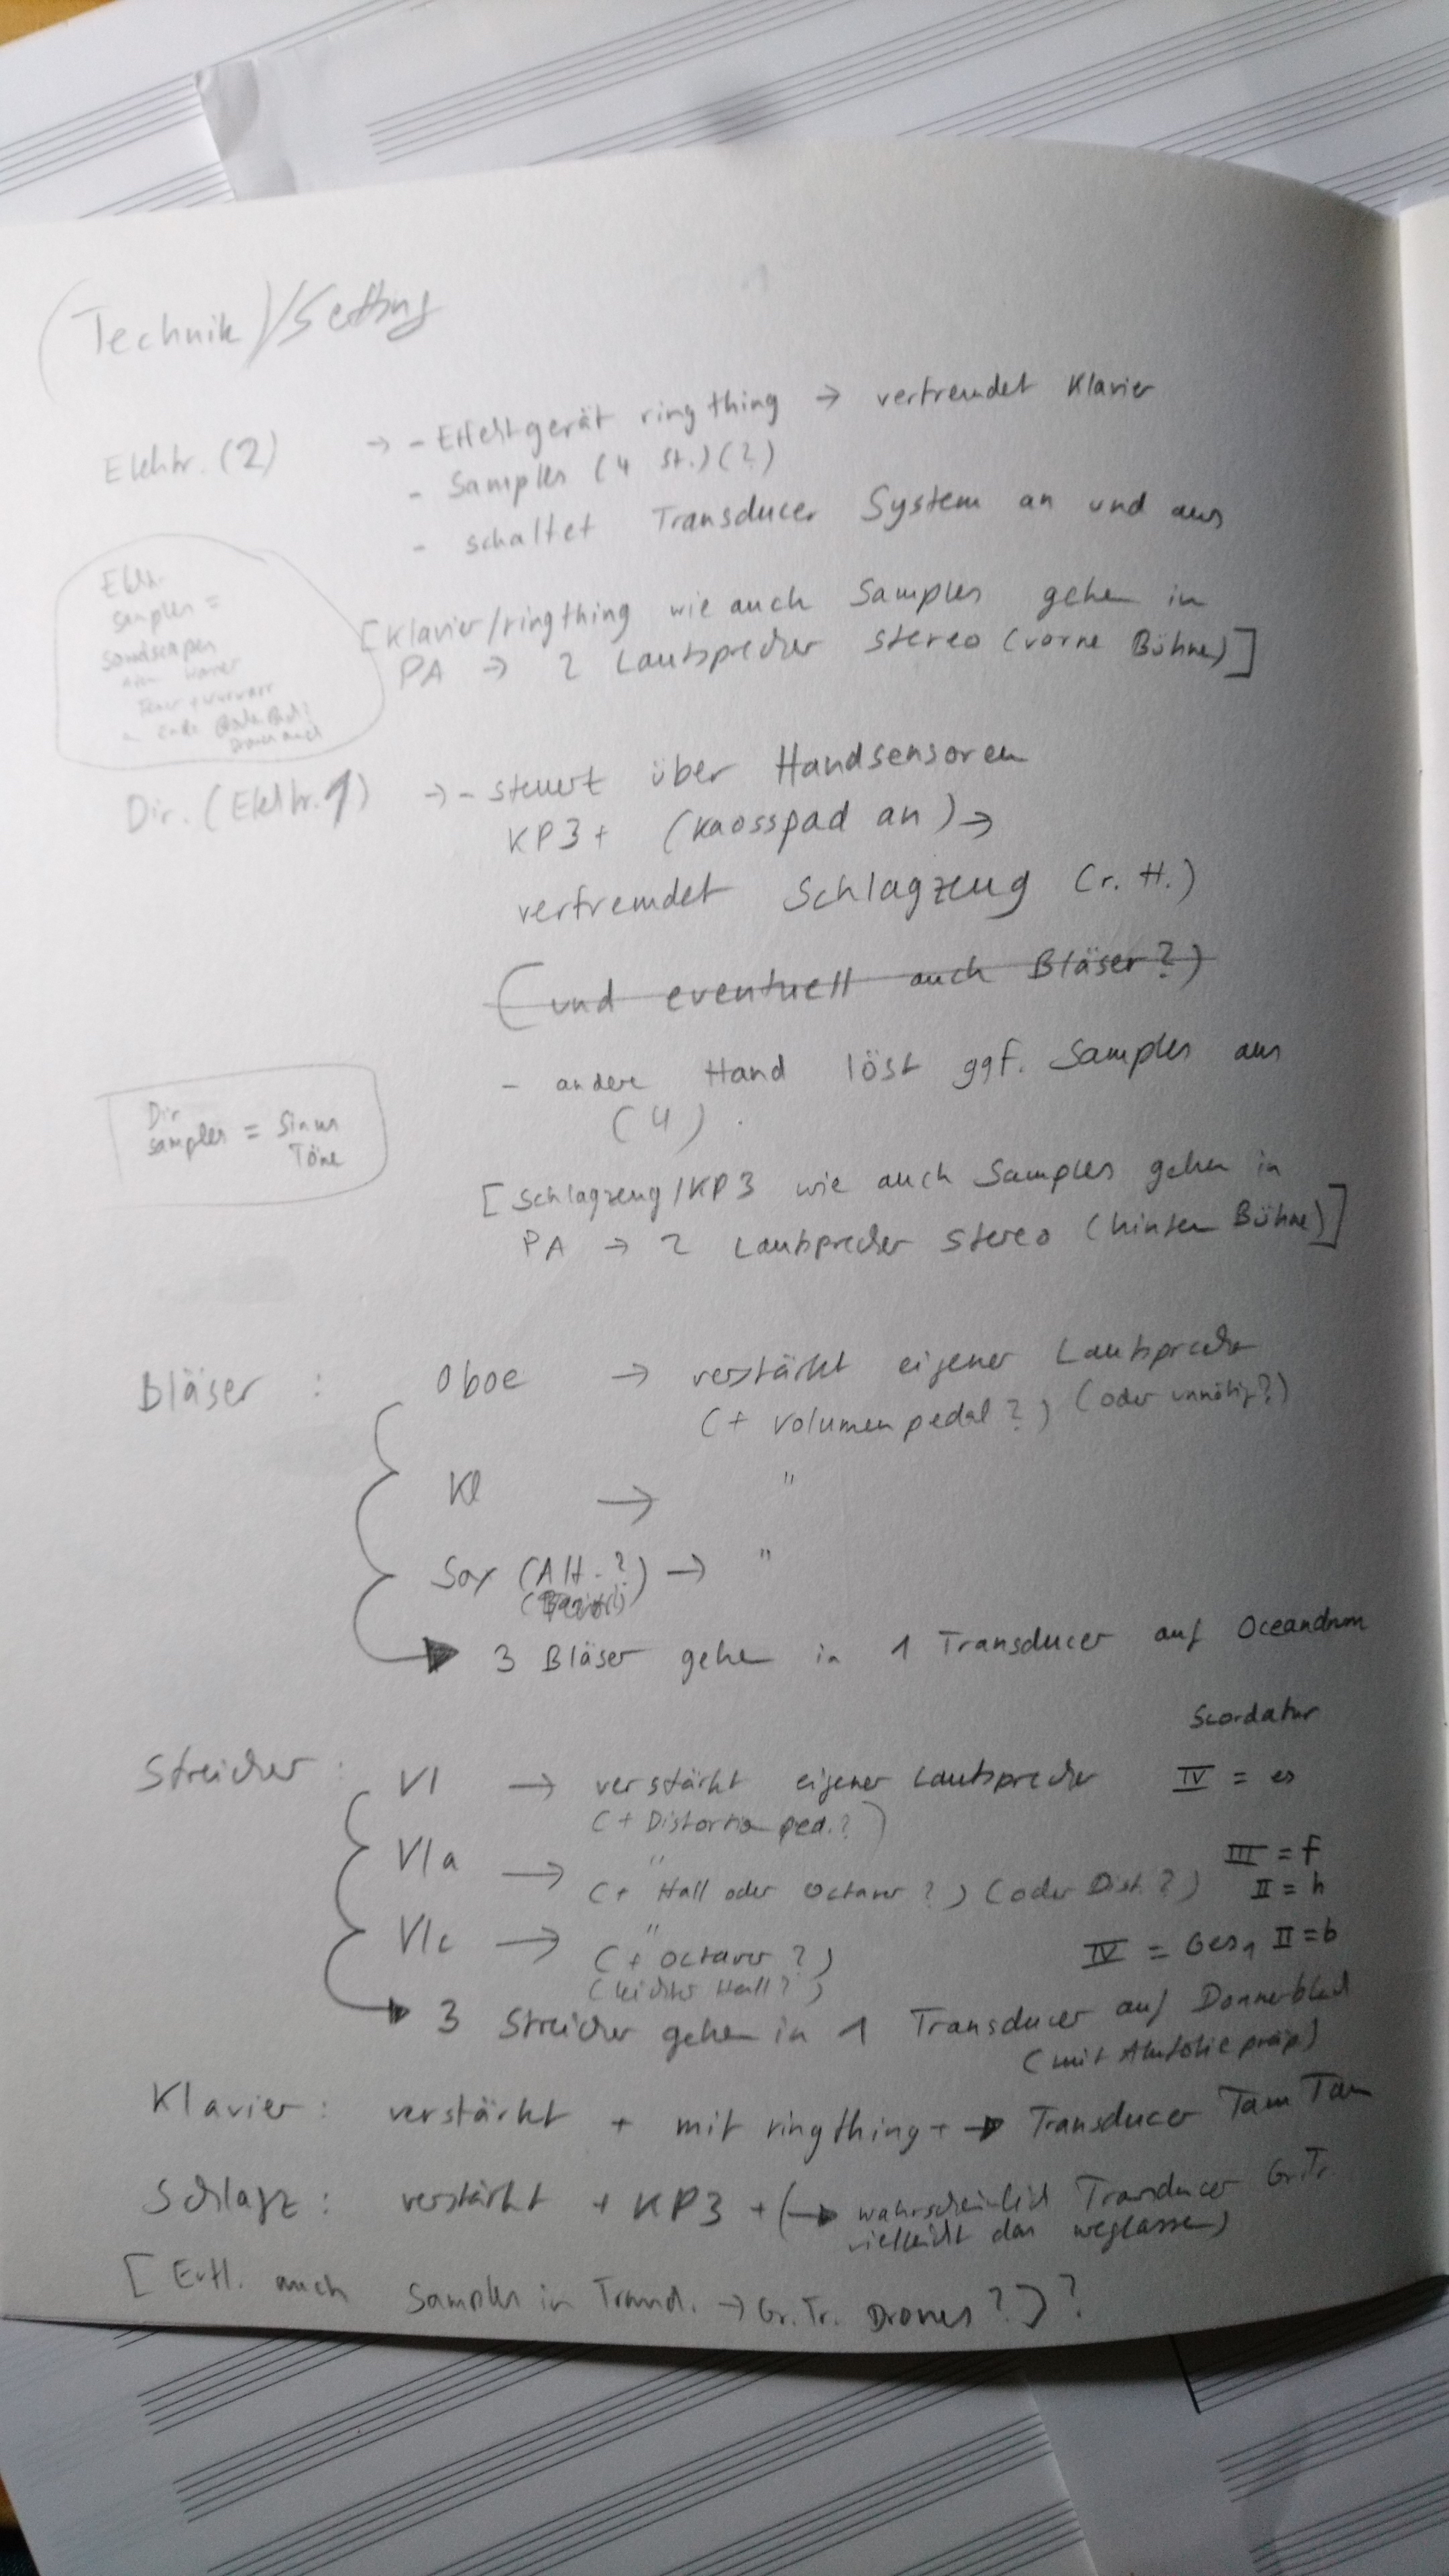 (Technik)/Setting
Elektr. (2) → - Effektgerät ringthing → verfremdet Klavier
- Samples (4 St.) (?)
- schaltet Transducer System an und aus
Elektr.
Samples =
Soundscapes
[Klavier/ringthing wie auch Samples gehen in
PA → 2 Lautsprecher stereo (vorne Bühne)]
Dir. (Elektr. 1) → - steuert über Handsensoren
KP3+ (Kaosspad an) →
verfremdet Schlagzeug (r. H.)
(und eventuell auch Bläser?)
- andere Hand löst ggf. Samples aus
(4).
Dir
samples = Sinus
Töne
[Schlagzeug/KP3 wie auch Samples gehen in
PA → 2 Lautsprecher stereo (hinten Bühne)]
Bläser : Oboe → verstärkt eigener Lautsprecher
(+ Volumenpedal?) (oder unnötig?)
Kl → "
Sax (Alt.?) → "
3 Bläser gehen in 1 Transducer auf Oceandrum
Scordatur
Streicher : Vl → verstärkt eigener Lautsprecher IV = es
(+ Distortion ped.?)
Vla → " III = f
(+ Hall oder Octaver?) (oder Dist.?) II = h
Vlc → " IV = Ges, II = b
(+ Octaver?)
(leichter Hall?)
3 Streicher gehen in 1 Transducer auf Donnerblech
(mit Alufolie präp)
Klavier : verstärkt + mit ringthing + → Transducer Tam Tam
Schlagz : verstärkt + KP3 + (→ wahrscheinlich Transducer Gr.Tr.
vielleicht das weglassen)
[Evtl. auch Samples in Transd. → Gr.Tr. Drones?]?